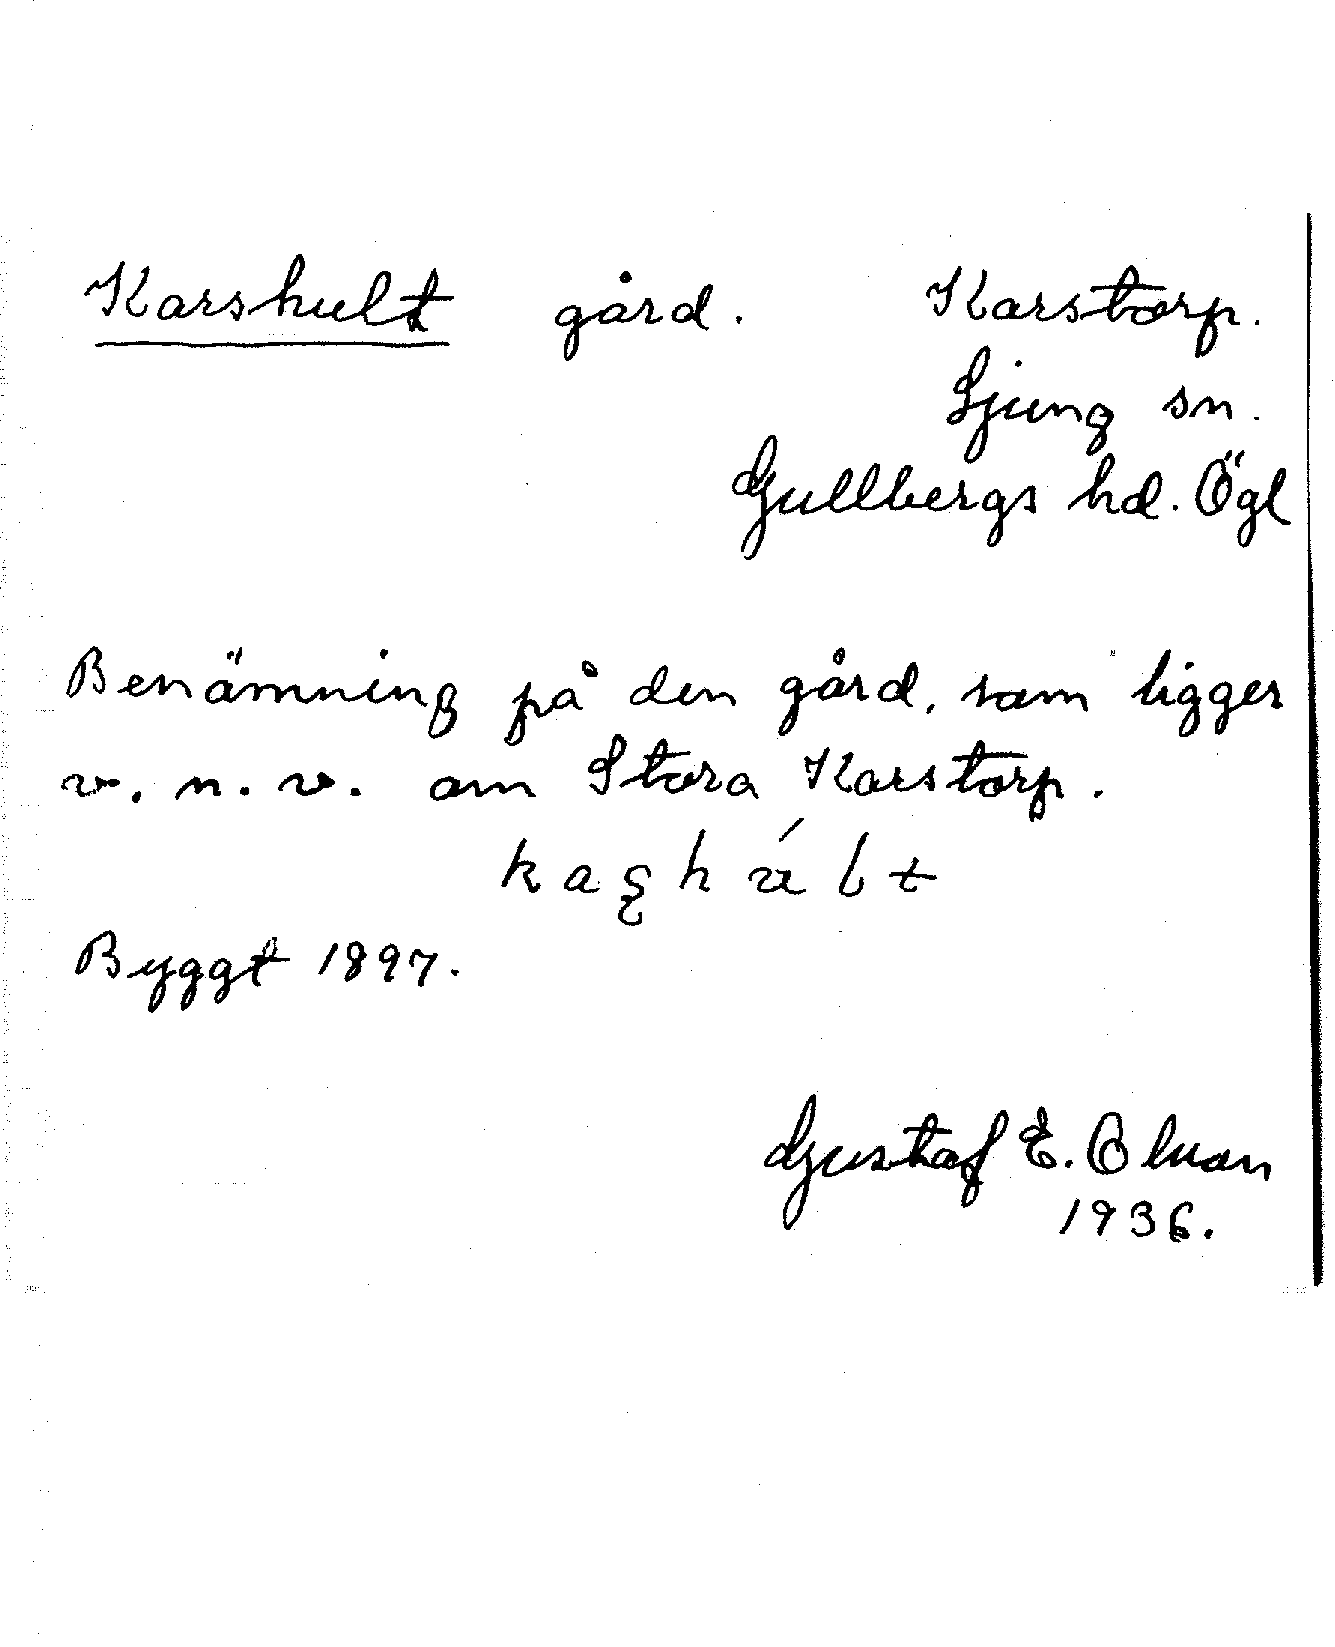 Karshult gård. Karstorp.
Ljung sn.
Gullbergs hd. Ögl
Benämning på den gård, som ligger
v. n. v. om Stora Karstorp.
Byggt 1897.
Gustaf E. Olsson
1936.